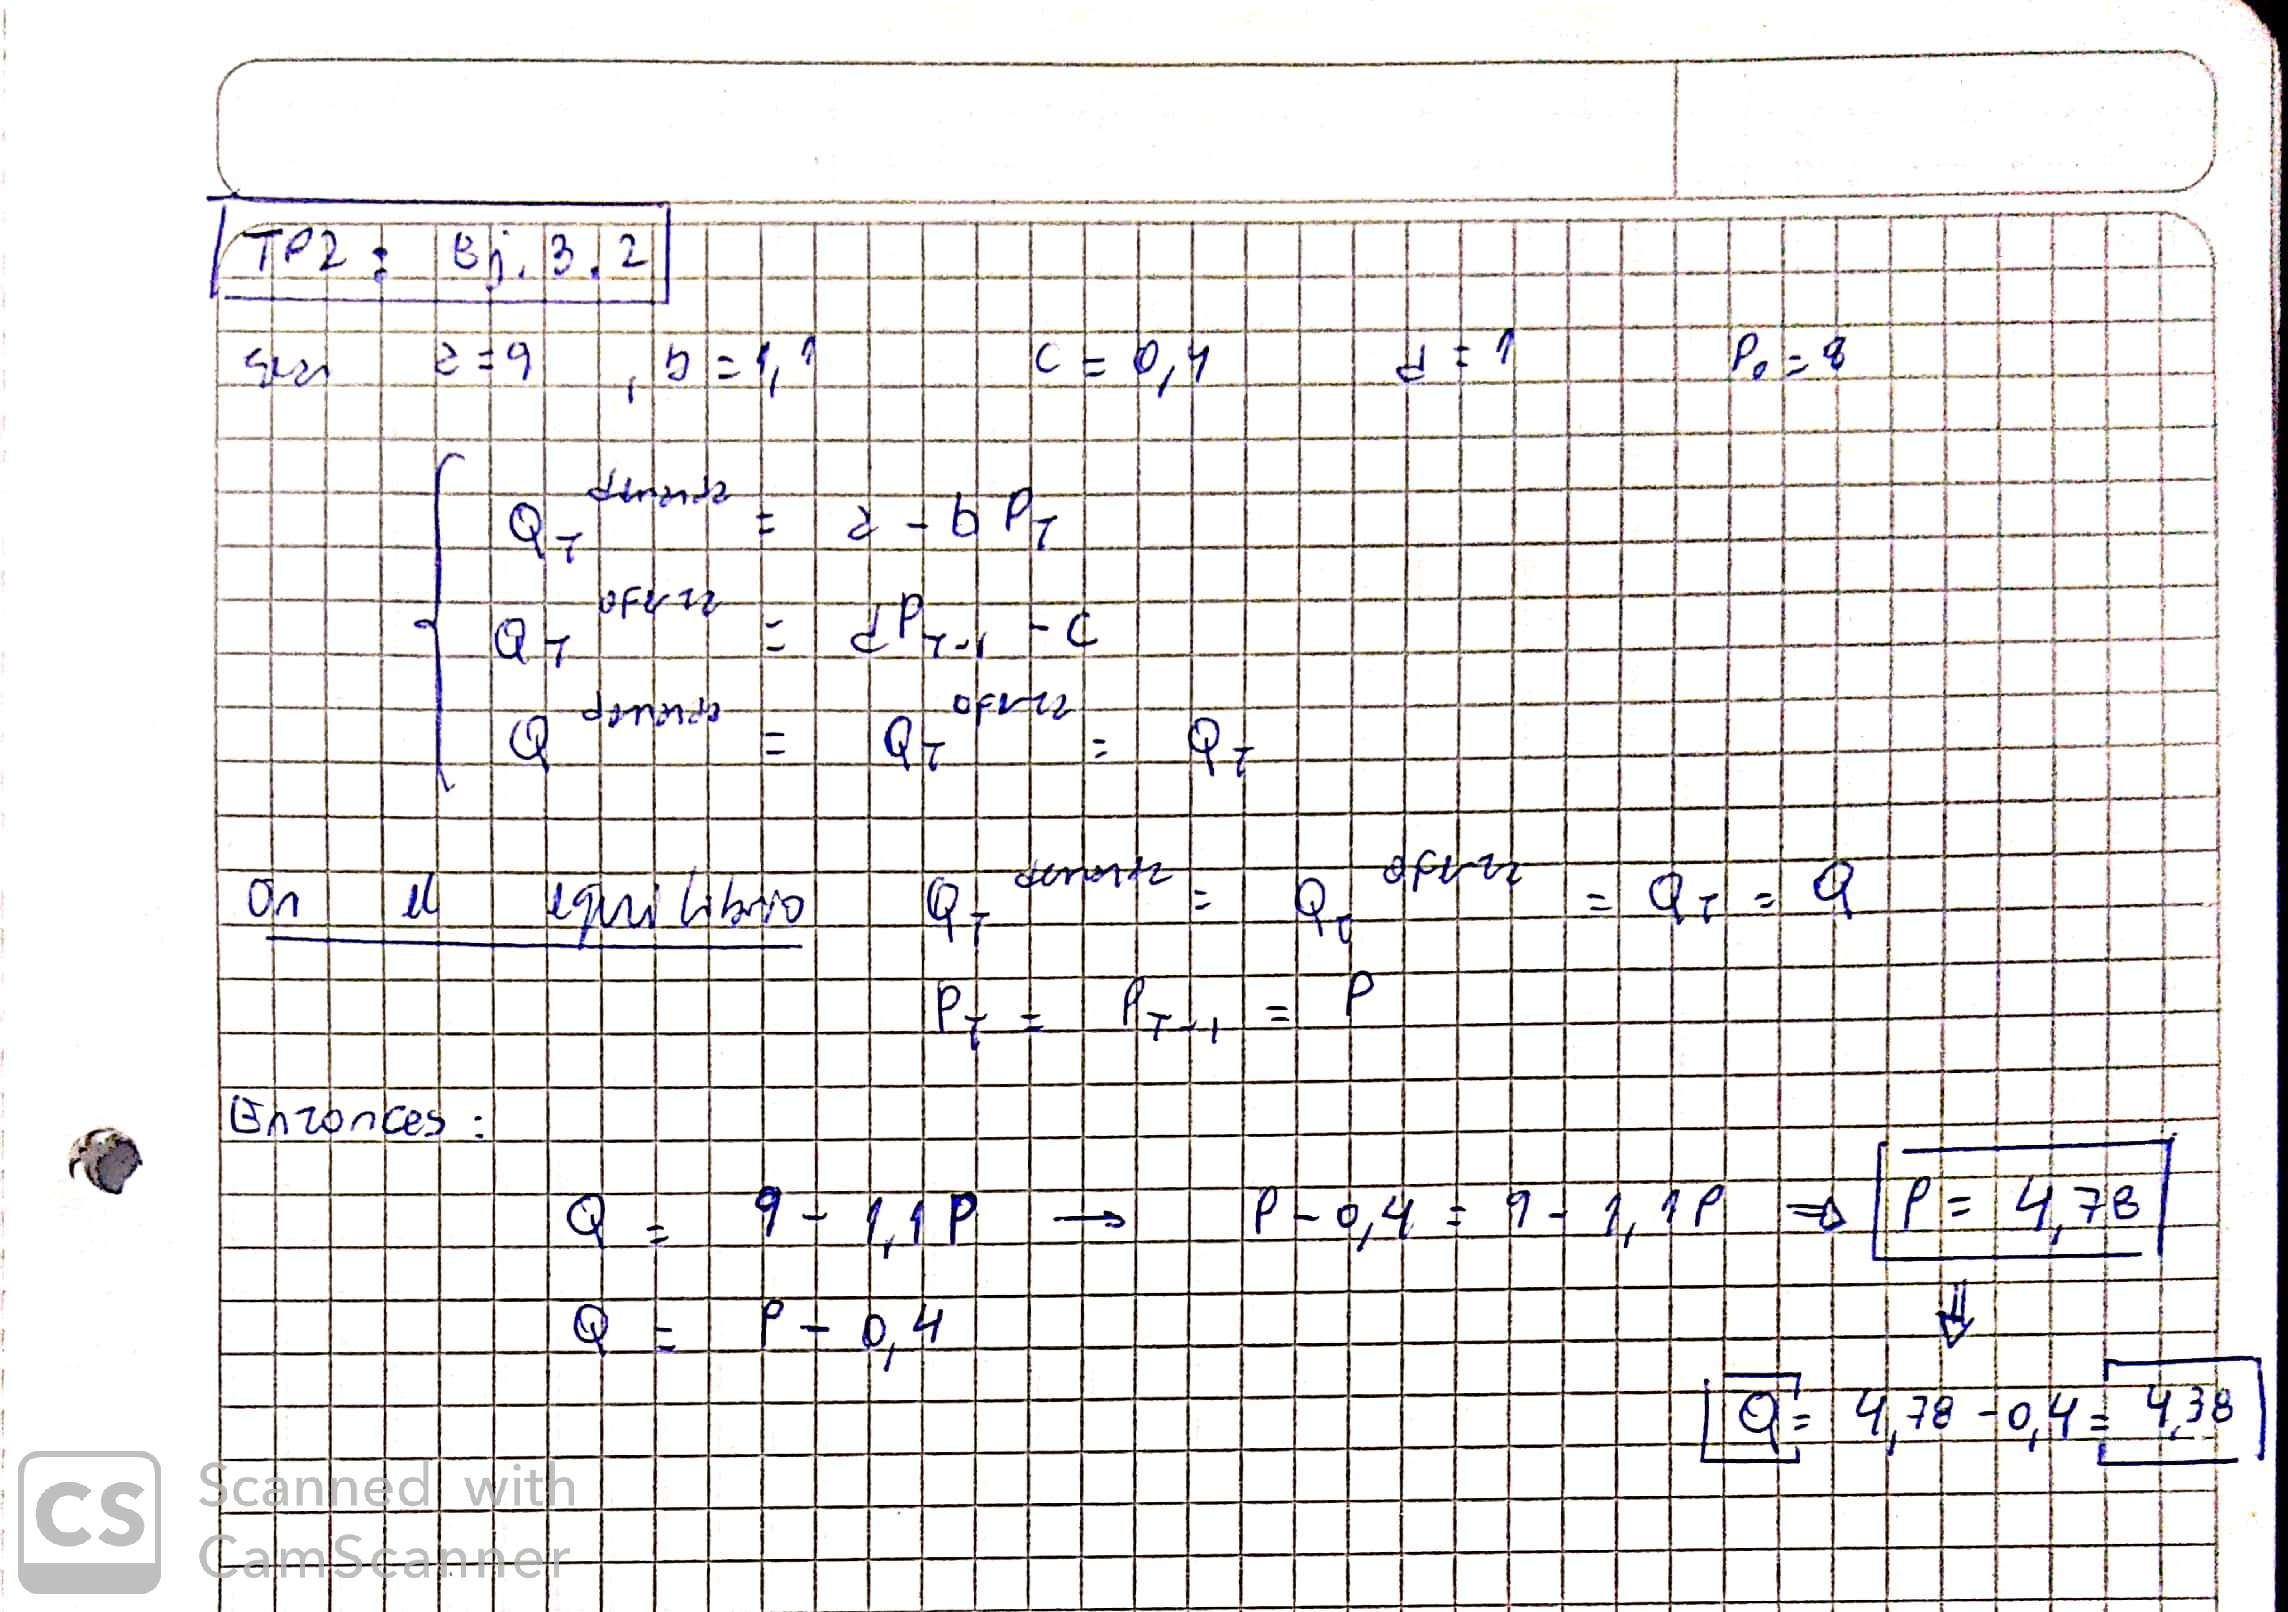 TP2: Ej. 3.2
Sean a=9, b=1,1 c=0,4 d=1 P₀=8
Q_T^demanda = a - b P_T
Q_T^oferta = d P_T-1 - c
Q^demanda = Q_T^oferta = Q_T
En el equilibrio Q_T^demanda = Q_T^oferta = Q_T = Q
P_T = P_T-1 = P
Entonces:
Q = 9 - 1,1 P → P - 0,4 = 9 - 1,1 P ⇒ P = 4,78
⇓
Q = P - 0,4
Q = 4,78 - 0,4 = 4,38
CS Scanned with
CamScanner